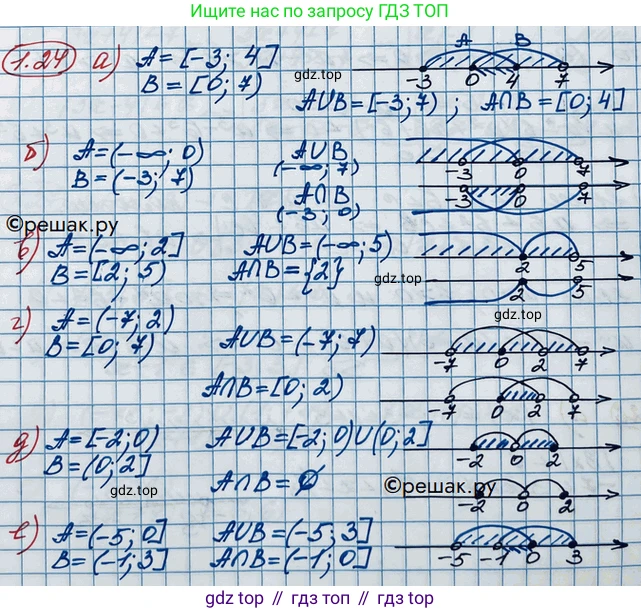 Ищите нас в поиске по запросу ГДЗ ТОП
1.24 а) A = [-3; 4]
B = [0; 7)
A B
-3 0 4 7
gdz.top
A∪B = [-3; 7) ; A∩B = [0; 4]
б) A = (-∞; 0)
B = (-3; 7)
A∪B
(-∞; 7)
A∩B
(-3; 0)
-3 0 7
-3 0 7
©решак.ру
в) A = (-∞; 2]
B = [2; 5)
A∪B = (-∞; 5)
A∩B = {2}
gdz.top
2 5
2 5
г) A = (-7; 2)
B = [0; 7)
A∪B = (-7; 7)
A∩B = [0; 2)
-7 0 2 7
-7 0 2 7
д) A = [-2; 0)
B = (0; 2]
gdz.top
A∪B = [-2; 0)∪(0; 2]
A∩B = ∅
-2 0 2
©решак.ру
-2 0 2
е) A = (-5; 0]
B = (-1; 3]
A∪B = (-5; 3]
A∩B = (-1; 0]
-5 -1 0 3
gdz.top // гдз.top // гдз.топ